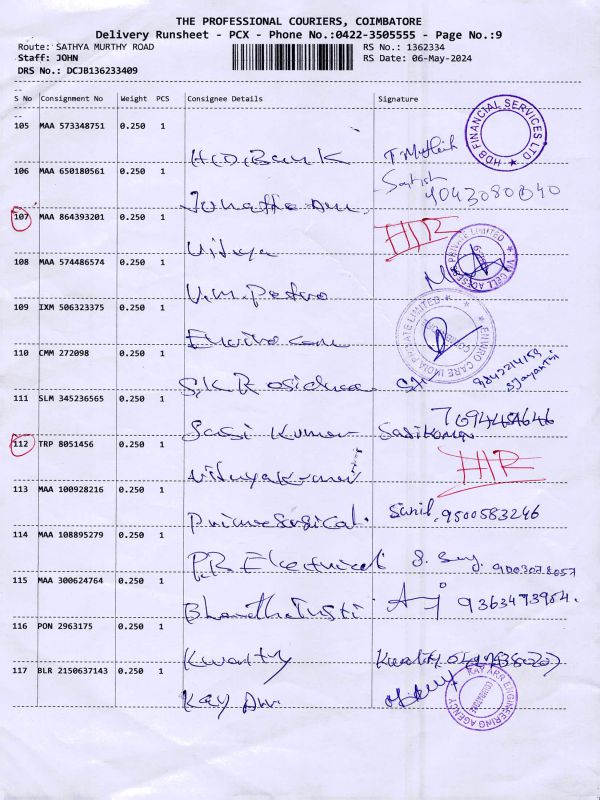 THE PROFESSIONAL COURIERS, COIMBATORE
Delivery Runsheet - PCX - Phone No.:0422-3505555 - Page No.:9
Route: SATHYA MURTHY ROAD RS No.: 1362334
Staff: JOHN RS Date: 06-May-2024
DRS No.: DCJB136233409
S No Consignment No Weight PCS Consignee Details Signature
105 MAA 573348751 0.250 1
HDB FINANCIAL SERVICES LTD
106 MAA 650180561 0.250 1
Satish
107 MAA 864393201 0.250 1
Vidya
108 MAA 574486574 0.250 1
V.M. Petro
109 IXM 506323375 0.250 1
Enviro Care
ENVIRO CARE INDIA PRIVATE LIMITED
110 CMM 272098 0.250 1
9842214159
S Jayanthi
111 SLM 345236565 0.250 1
Sasi Kumar Sasikumar
112 TRP 8051456 0.250 1
113 MAA 100928216 0.250 1
Prime Surgical. Sunil. 9500583246
114 MAA 108895279 0.250 1
P.R. Electrical
115 MAA 300624764 0.250 1
9363493984.
116 PON 2963175 0.250 1
Kwality Kwality
117 BLR 2150637143 0.250 1
Kay Arr
KAY ARR ENGINEERING AGENCY
COIMBATORE